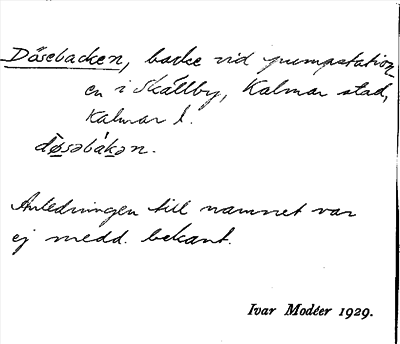 Dösebacken, backe vid pumpstation
en i Skällby, Kalmar stad,
Kalmar l.
dø̀səbákən.
Anledningen till namnet var
ej medd. bekant.
Ivar Modéer 1929.